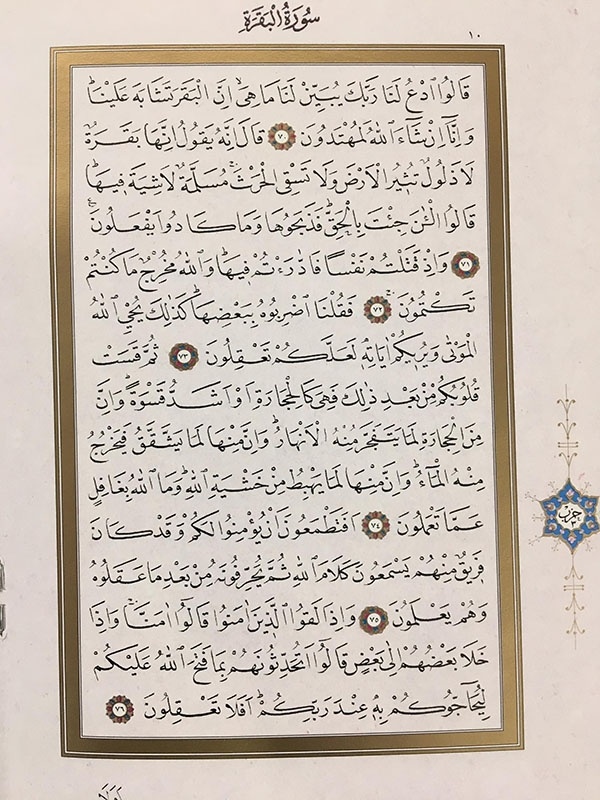 سُورَةُ الْبَقَرَةِ
١٠
قَالُوا ادْعُ لَنَا رَبَّكَ يُبَيِّنْ لَنَا مَا هِيَۙ اِنَّ الْبَقَرَ تَشَابَهَ عَلَيْنَاۜ
وَاِنَّٓا اِنْ شَٓاءَ اللّٰهُ لَمُهْتَدُونَ ﴿٧٠﴾ قَالَ اِنَّهُ يَقُولُ اِنَّهَا بَقَرَةٌ
لَا ذَلُولٌ تُثِيرُ الْاَرْضَ وَلَا تَسْقِي الْحَرْثَۚ مُسَلَّمَةٌ لَا شِيَةَ فِيهَاۜ
قَالُوا الْـٰٔنَ جِئْتَ بِالْحَقِّۜ فَذَبَحُوهَا وَمَا كَادُوا يَفْعَلُونَ۟
﴿٧١﴾ وَاِذْ قَتَلْتُمْ نَفْسًا فَادّٰرَءْتُمْ فِيهَاۜ وَاللّٰهُ مُخْرِجٌ مَا كُنْتُمْ
تَكْتُمُونَۚ ﴿٧٢﴾ فَقُلْنَا اضْرِبُوهُ بِبَعْضِهَاۜ كَذٰلِكَ يُحْيِي اللّٰهُ
الْمَوْتٰى وَيُرِيكُمْ اٰيَاتِهٖ لَعَلَّكُمْ تَعْقِلُونَ ﴿٧٣﴾ ثُمَّ قَسَتْ
قُلُوبُكُمْ مِنْ بَعْدِ ذٰلِكَ فَهِيَ كَالْحِجَارَةِ اَوْ اَشَدُّ قَسْوَةًۜ وَاِنَّ
مِنَ الْحِجَارَةِ لَمَا يَتَفَجَّرُ مِنْهُ الْاَنْهَارُۜ وَاِنَّ مِنْهَا لَمَا يَشَّقَّقُ فَيَخْرُجُ
مِنْهُ الْمَٓاءُۜ وَاِنَّ مِنْهَا لَمَا يَهْبِطُ مِنْ خَشْيَةِ اللّٰهِۜ وَمَا اللّٰهُ بِغَافِلٍ
عَمَّا تَعْمَلُونَ ﴿٧٤﴾ اَفَتَطْمَعُونَ اَنْ يُؤْمِنُوا لَكُمْ وَقَدْ كَانَ
فَرِيقٌ مِنْهُمْ يَسْمَعُونَ كَلَامَ اللّٰهِ ثُمَّ يُحَرِّفُونَهُ مِنْ بَعْدِ مَا عَقَلُوهُ
وَهُمْ يَعْلَمُونَ ﴿٧٥﴾ وَاِذَا لَقُوا الَّذِينَ اٰمَنُوا قَالُٓوا اٰمَنَّاۚ وَاِذَا
خَلَا بَعْضُهُمْ اِلٰى بَعْضٍ قَالُٓوا اَتُحَدِّثُونَهُمْ بِمَا فَتَحَ اللّٰهُ عَلَيْكُمْ
لِيُحَٓاجُّوكُمْ بِهٖ عِنْدَ رَبِّكُمْۜ اَفَلَا تَعْقِلُونَ ﴿٧٦﴾
حزب
اَوَلَا